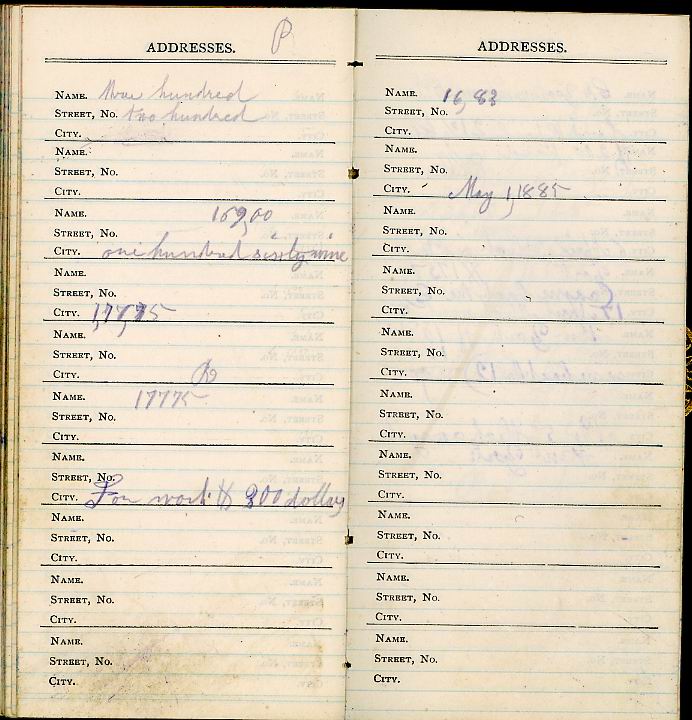 ADDRESSES. P
NAME. three hundred
STREET, NO. two hundred
CITY.
NAME.
STREET, NO.
CITY.
NAME. 169,00
STREET, NO.
CITY. one hundred sixty nine
NAME.
STREET, NO.
CITY. 177,75
NAME.
STREET, NO.
CITY.
NAME. 17775
STREET, NO.
CITY.
NAME.
STREET, NO.
CITY. For work $ 300 dollars
NAME.
STREET, NO.
CITY.
NAME.
STREET, NO.
CITY.
NAME.
STREET, NO.
CITY.
ADDRESSES.
NAME. 16,83
STREET, NO.
CITY.
NAME.
STREET, NO.
CITY. May 1, 1885
NAME.
STREET, NO.
CITY.
NAME.
STREET, NO.
CITY.
NAME.
STREET, NO.
CITY.
NAME.
STREET, NO.
CITY.
NAME.
STREET, NO.
CITY.
NAME.
STREET, NO.
CITY.
NAME.
STREET, NO.
CITY.
NAME.
STREET, NO.
CITY.